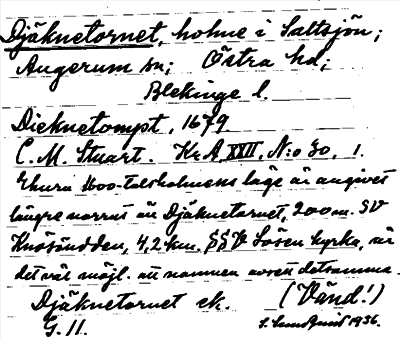 Djäknetornet, holme i Saltsjön;
Augerum sn; Östra hd;
Blekinge l.
Dieknetompt, 1679
C. M. Stuart. Kr A XXII, N:o 30, 1.
Ehuru 1600-talsholmens läge är angivet
längre norrut än Djäknetornet, 200 m. SV
Knösudden, 4,2 km. SSV Lösen kyrka, är
det väl möjl. att namnen avser detsamma.
Djäknetornet ek. (Vänd!)
G. 11. 1936.